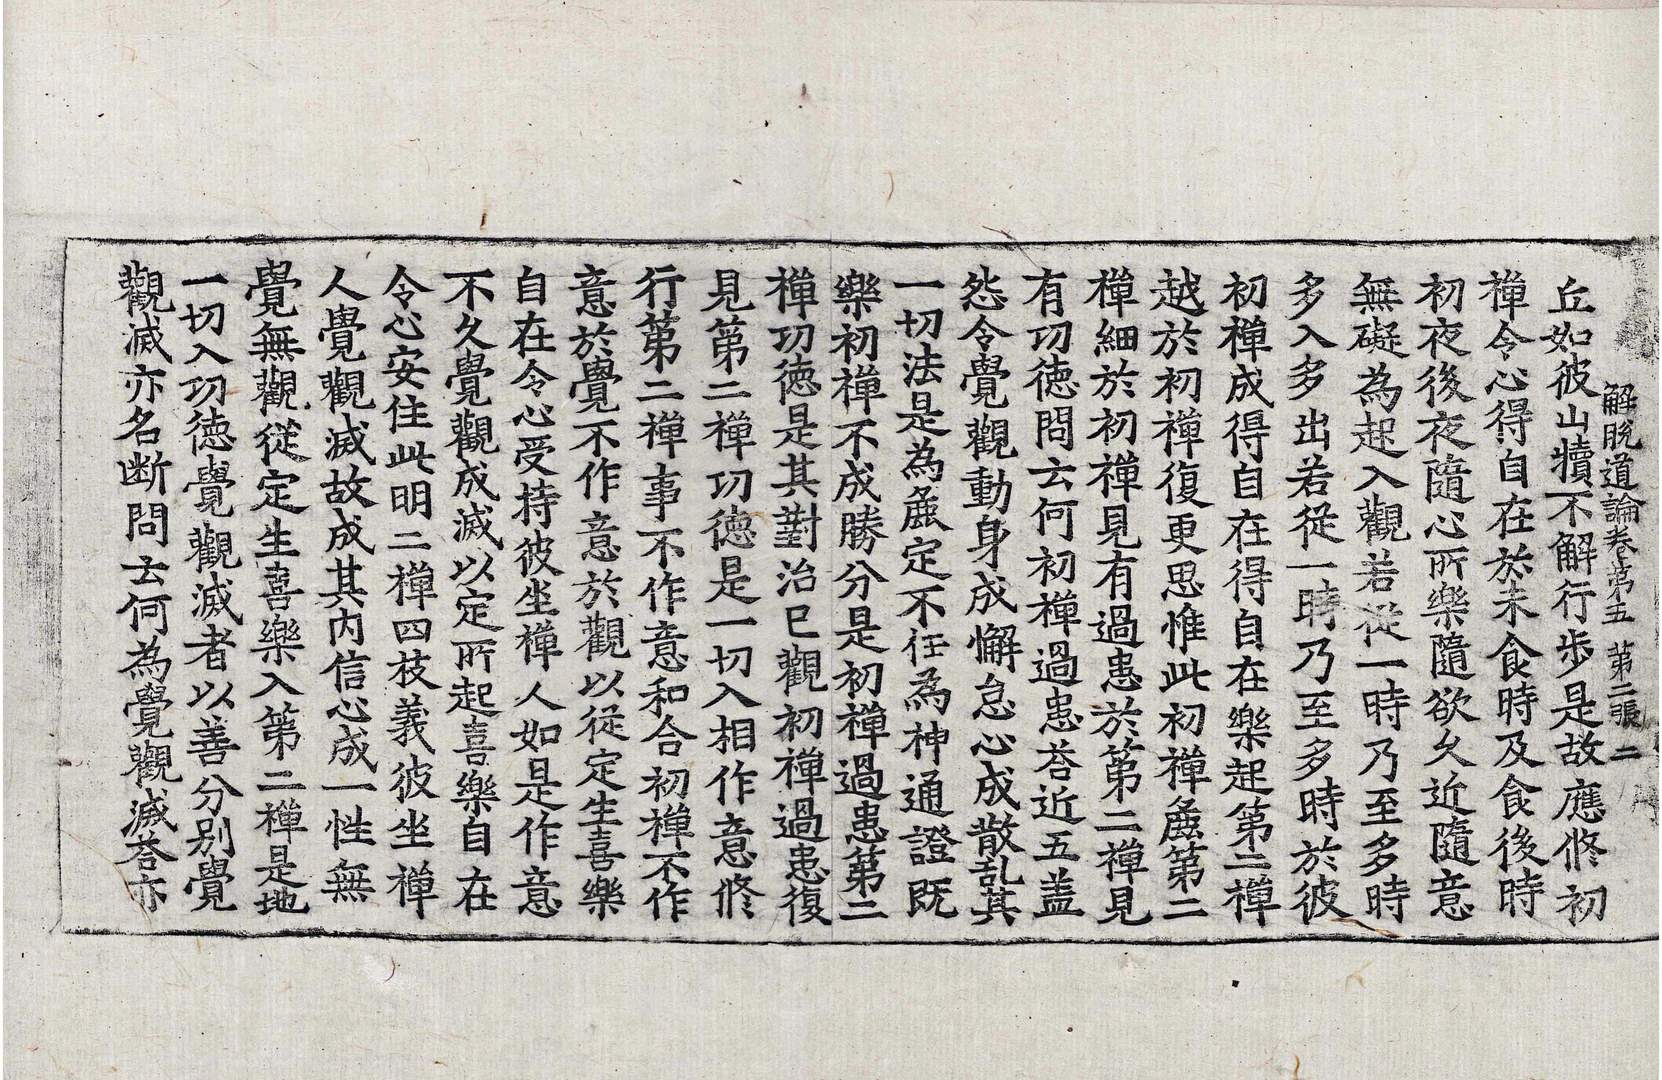 解脫道論卷第五　第二張　二
丘如彼山犢不解行步是故應修初
禪令心得自在於未食時及食後時
初夜後夜隨心所樂隨欲久近隨意
無礙為起入觀若從一時乃至多時
多入多出若從一時乃至多時於彼
初禪成得自在得自在樂起第二禪
越於初禪復更思惟此初禪麁第二
禪細於初禪見有過患於第二禪見
有功德問云何初禪過患荅近五盖
怨令覺觀動身成懈怠心成散乱其
一切法是為麁定不任為神通證既
樂初禪不成勝分是初禪過患第二
禪功德是其對治已觀初禪過患復
見第二禪功德是一切入相作意修
行第二禪事不作意和合初禪不作
意於覺不作意於觀以從定生喜樂
自在令心受持彼坐禪人如是作意
不久覺觀成滅以定所起喜樂自在
令心安住此明二禪四枝義彼坐禪
人覺觀滅故成其內信心成一性無
覺無觀從定生喜樂入第二禪是地
一切入功德覺觀滅者以善分別覺
觀滅亦名断問云何為覺觀滅荅亦